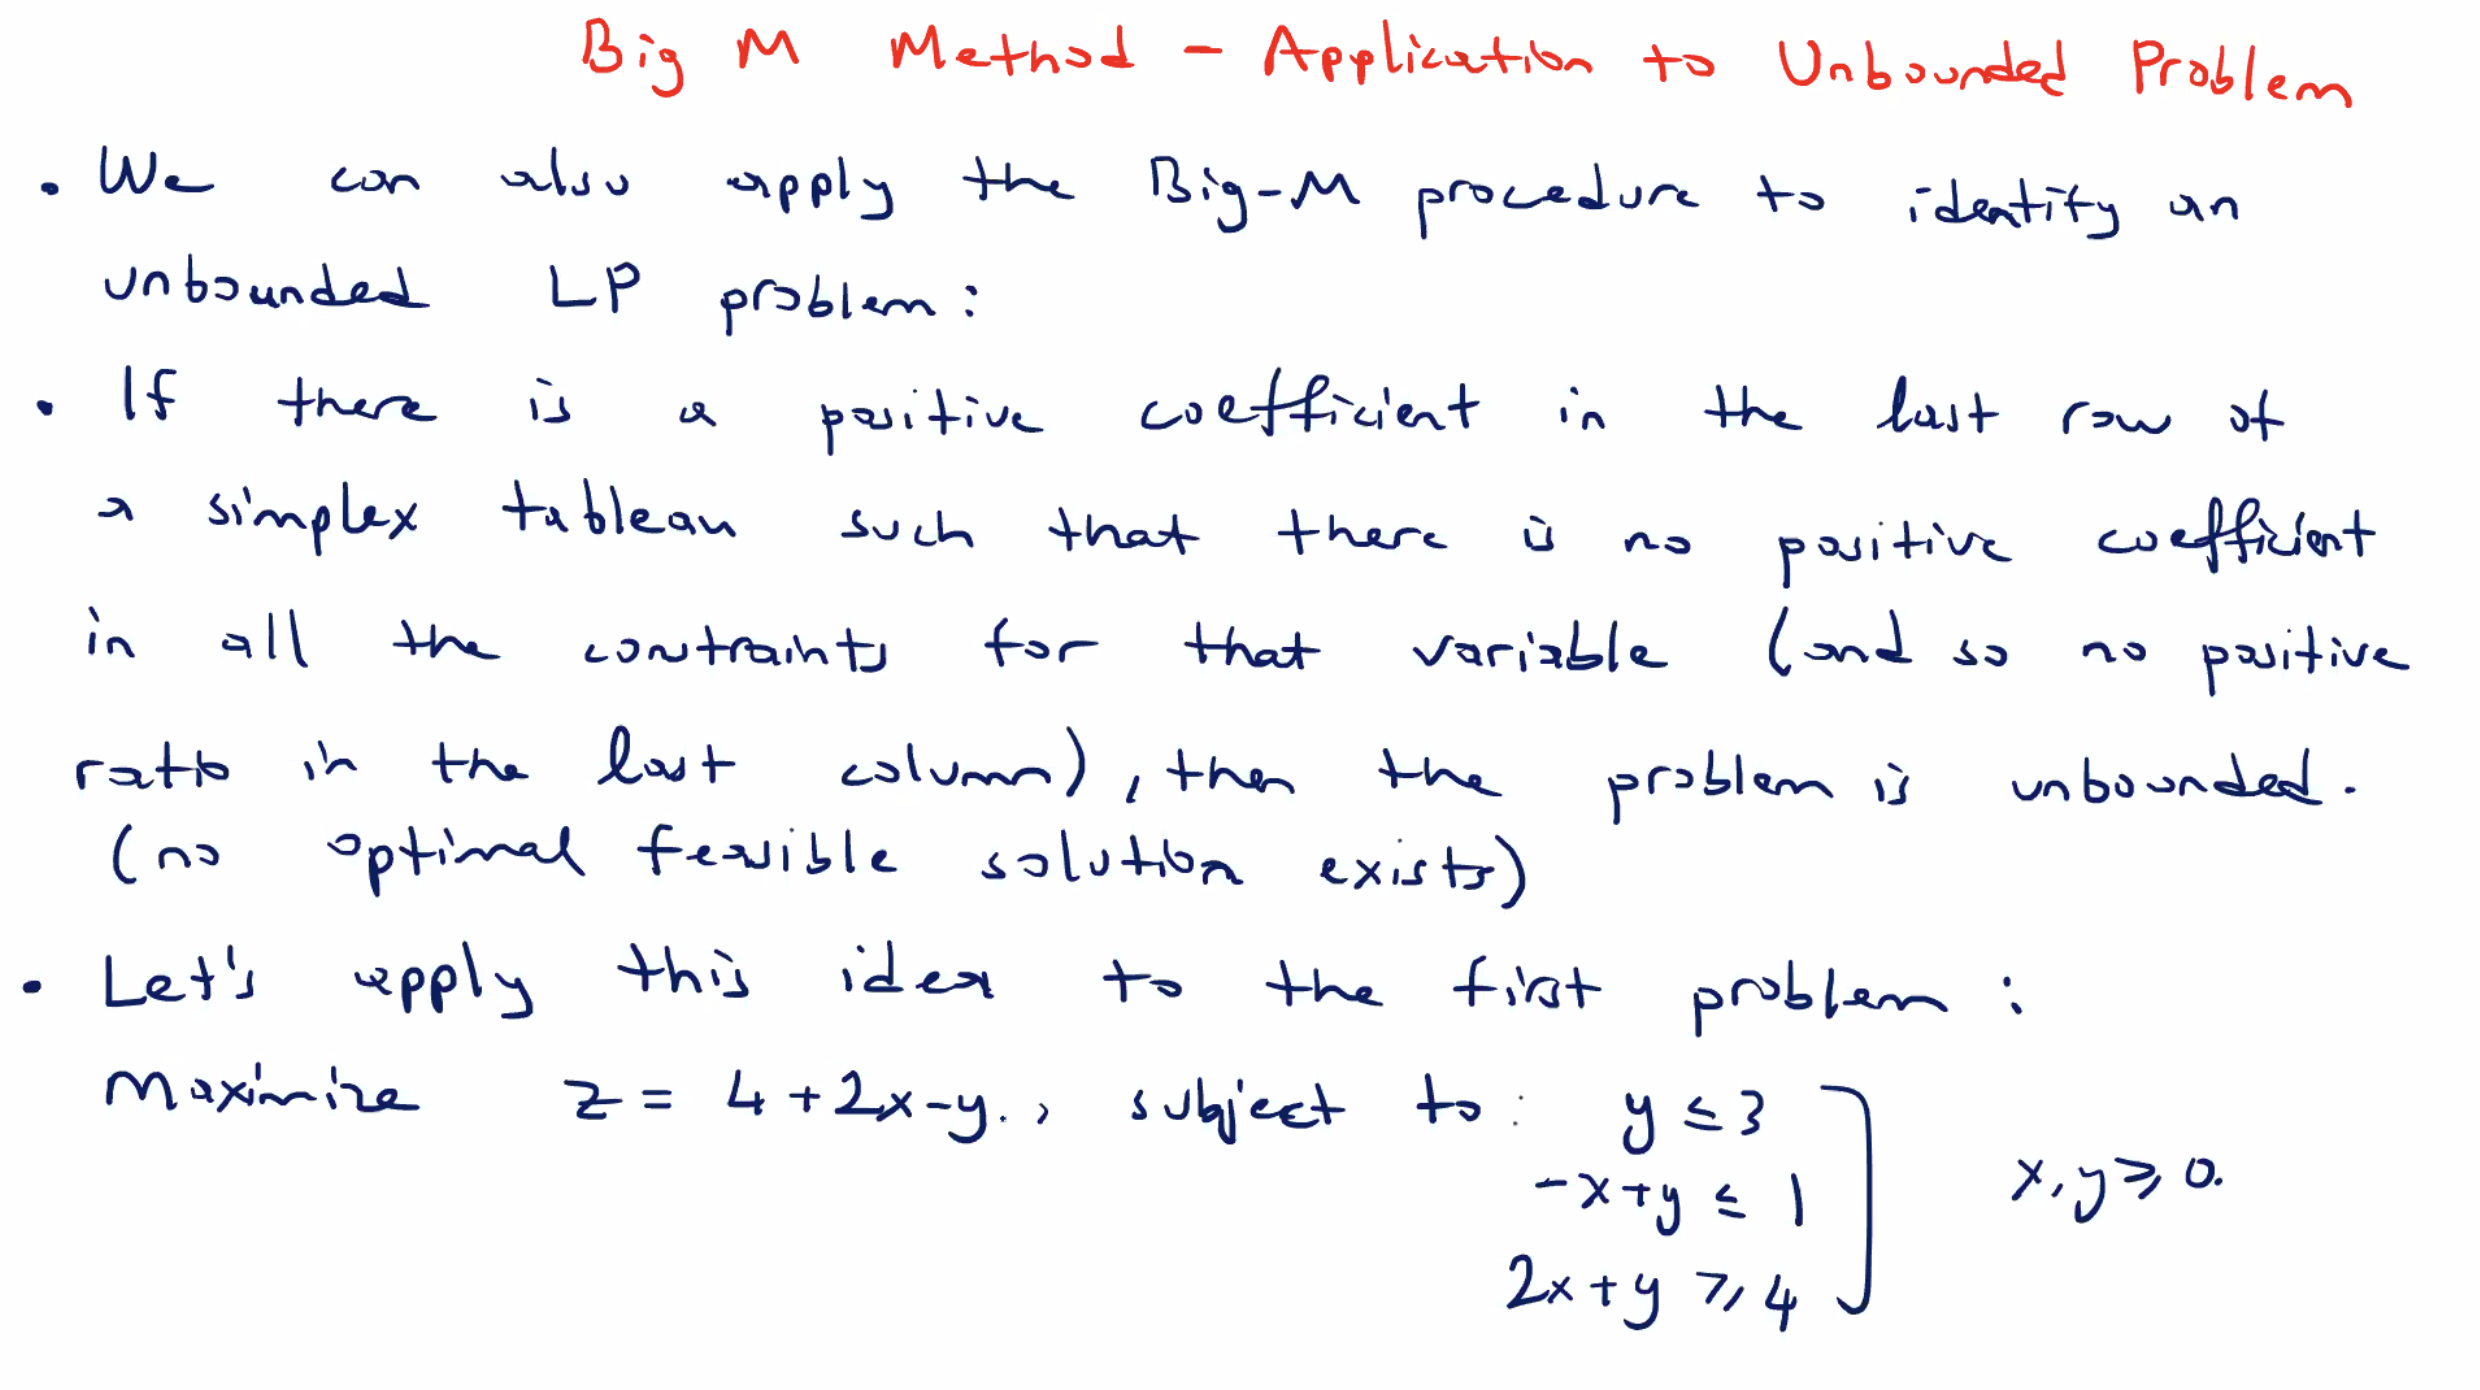 Big M Method - Application to Unbounded Problem
• We can also apply the Big-M procedure to identify an
unbounded LP problem:
• If there is a positive coefficient in the last row of
a simplex tableau such that there is no positive coefficient
in all the constraints for that variable (and so no positive
ratio in the last column), then the problem is unbounded.
(no optimal feasible solution exists)
• Let's apply this idea to the first problem:
Maximize z = 4 + 2x - y., subject to: y ≤ 3
-x + y ≤ 1
x, y ≥ 0.
2x + y ≥ 4